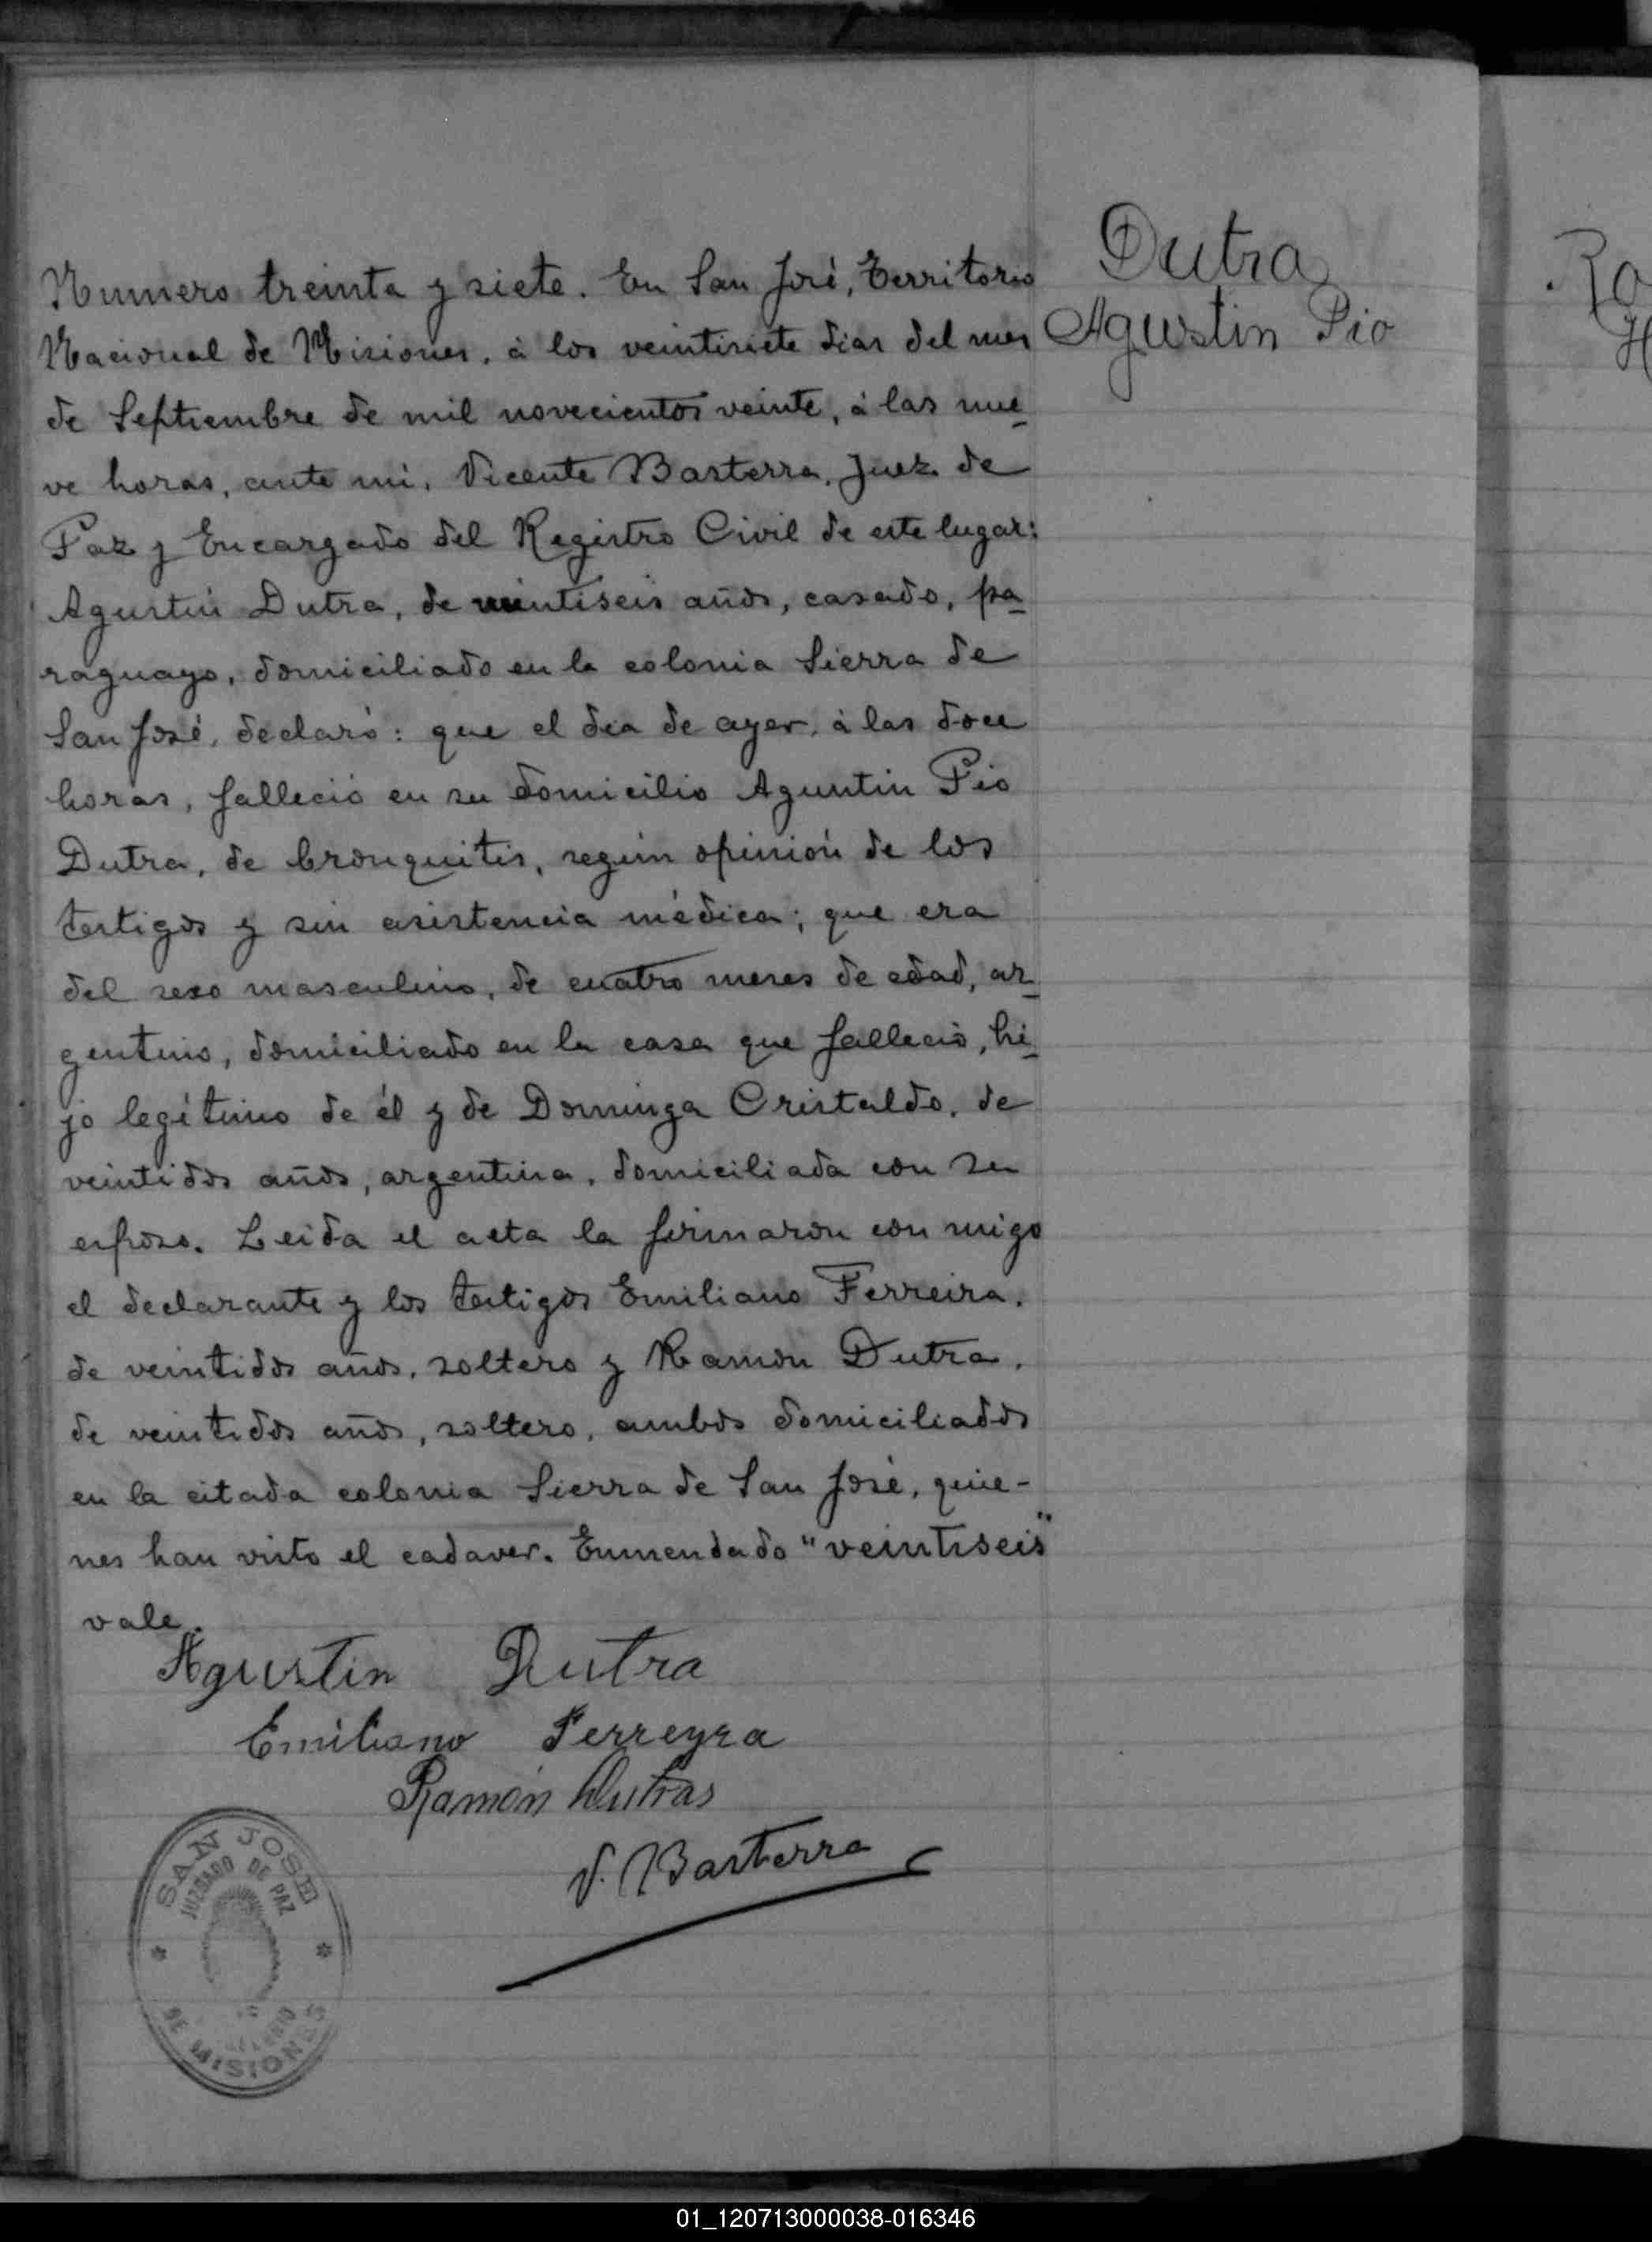 Dutra
Agustin Pio
Numero treinta y siete. En San José, Territorio
Nacional de Misiones, á los veintisiete dias del mes
de Septiembre de mil novecientos veinte, á las nue
ve horas, ante mi, Vicente Basterra, Juez de
Paz y Encargado del Registro Civil de este lugar:
Agustin Dutra, de veintiseis años, casado, pa
raguayo, domiciliado en la colonia Sierra de
San José, declaró: que el dia de ayer, á las doce
horas, falleció en su domicilio Agustin Pio
Dutra, de bronquitis, según opinión de los
testigos y sin asistencia médica; que era
del sexo masculino, de cuatro meses de edad, ar
gentino, domiciliado en la casa que falleció, hi
jo legítimo de él y de Dominga Cristaldo, de
veintidos años, argentina, domiciliada con su
esposo. Leida el acta la firmaron con migo
el declarante y los testigos Emiliano Ferreira,
de veintidos años, soltero y Ramon Dutra,
de veintidos años, soltero, ambos domiciliados
en la citada colonia Sierra de San José, quie-
nes han visto el cadaver. Enmendado "veintiseis"
vale.
Agustin Dutra
Emiliano Ferreyra
Ramón Dutras
V. Basterra
SAN JOSE
JUZGADO DE PAZ
DE MISIONES
Ra
H
01_120713000038-016346